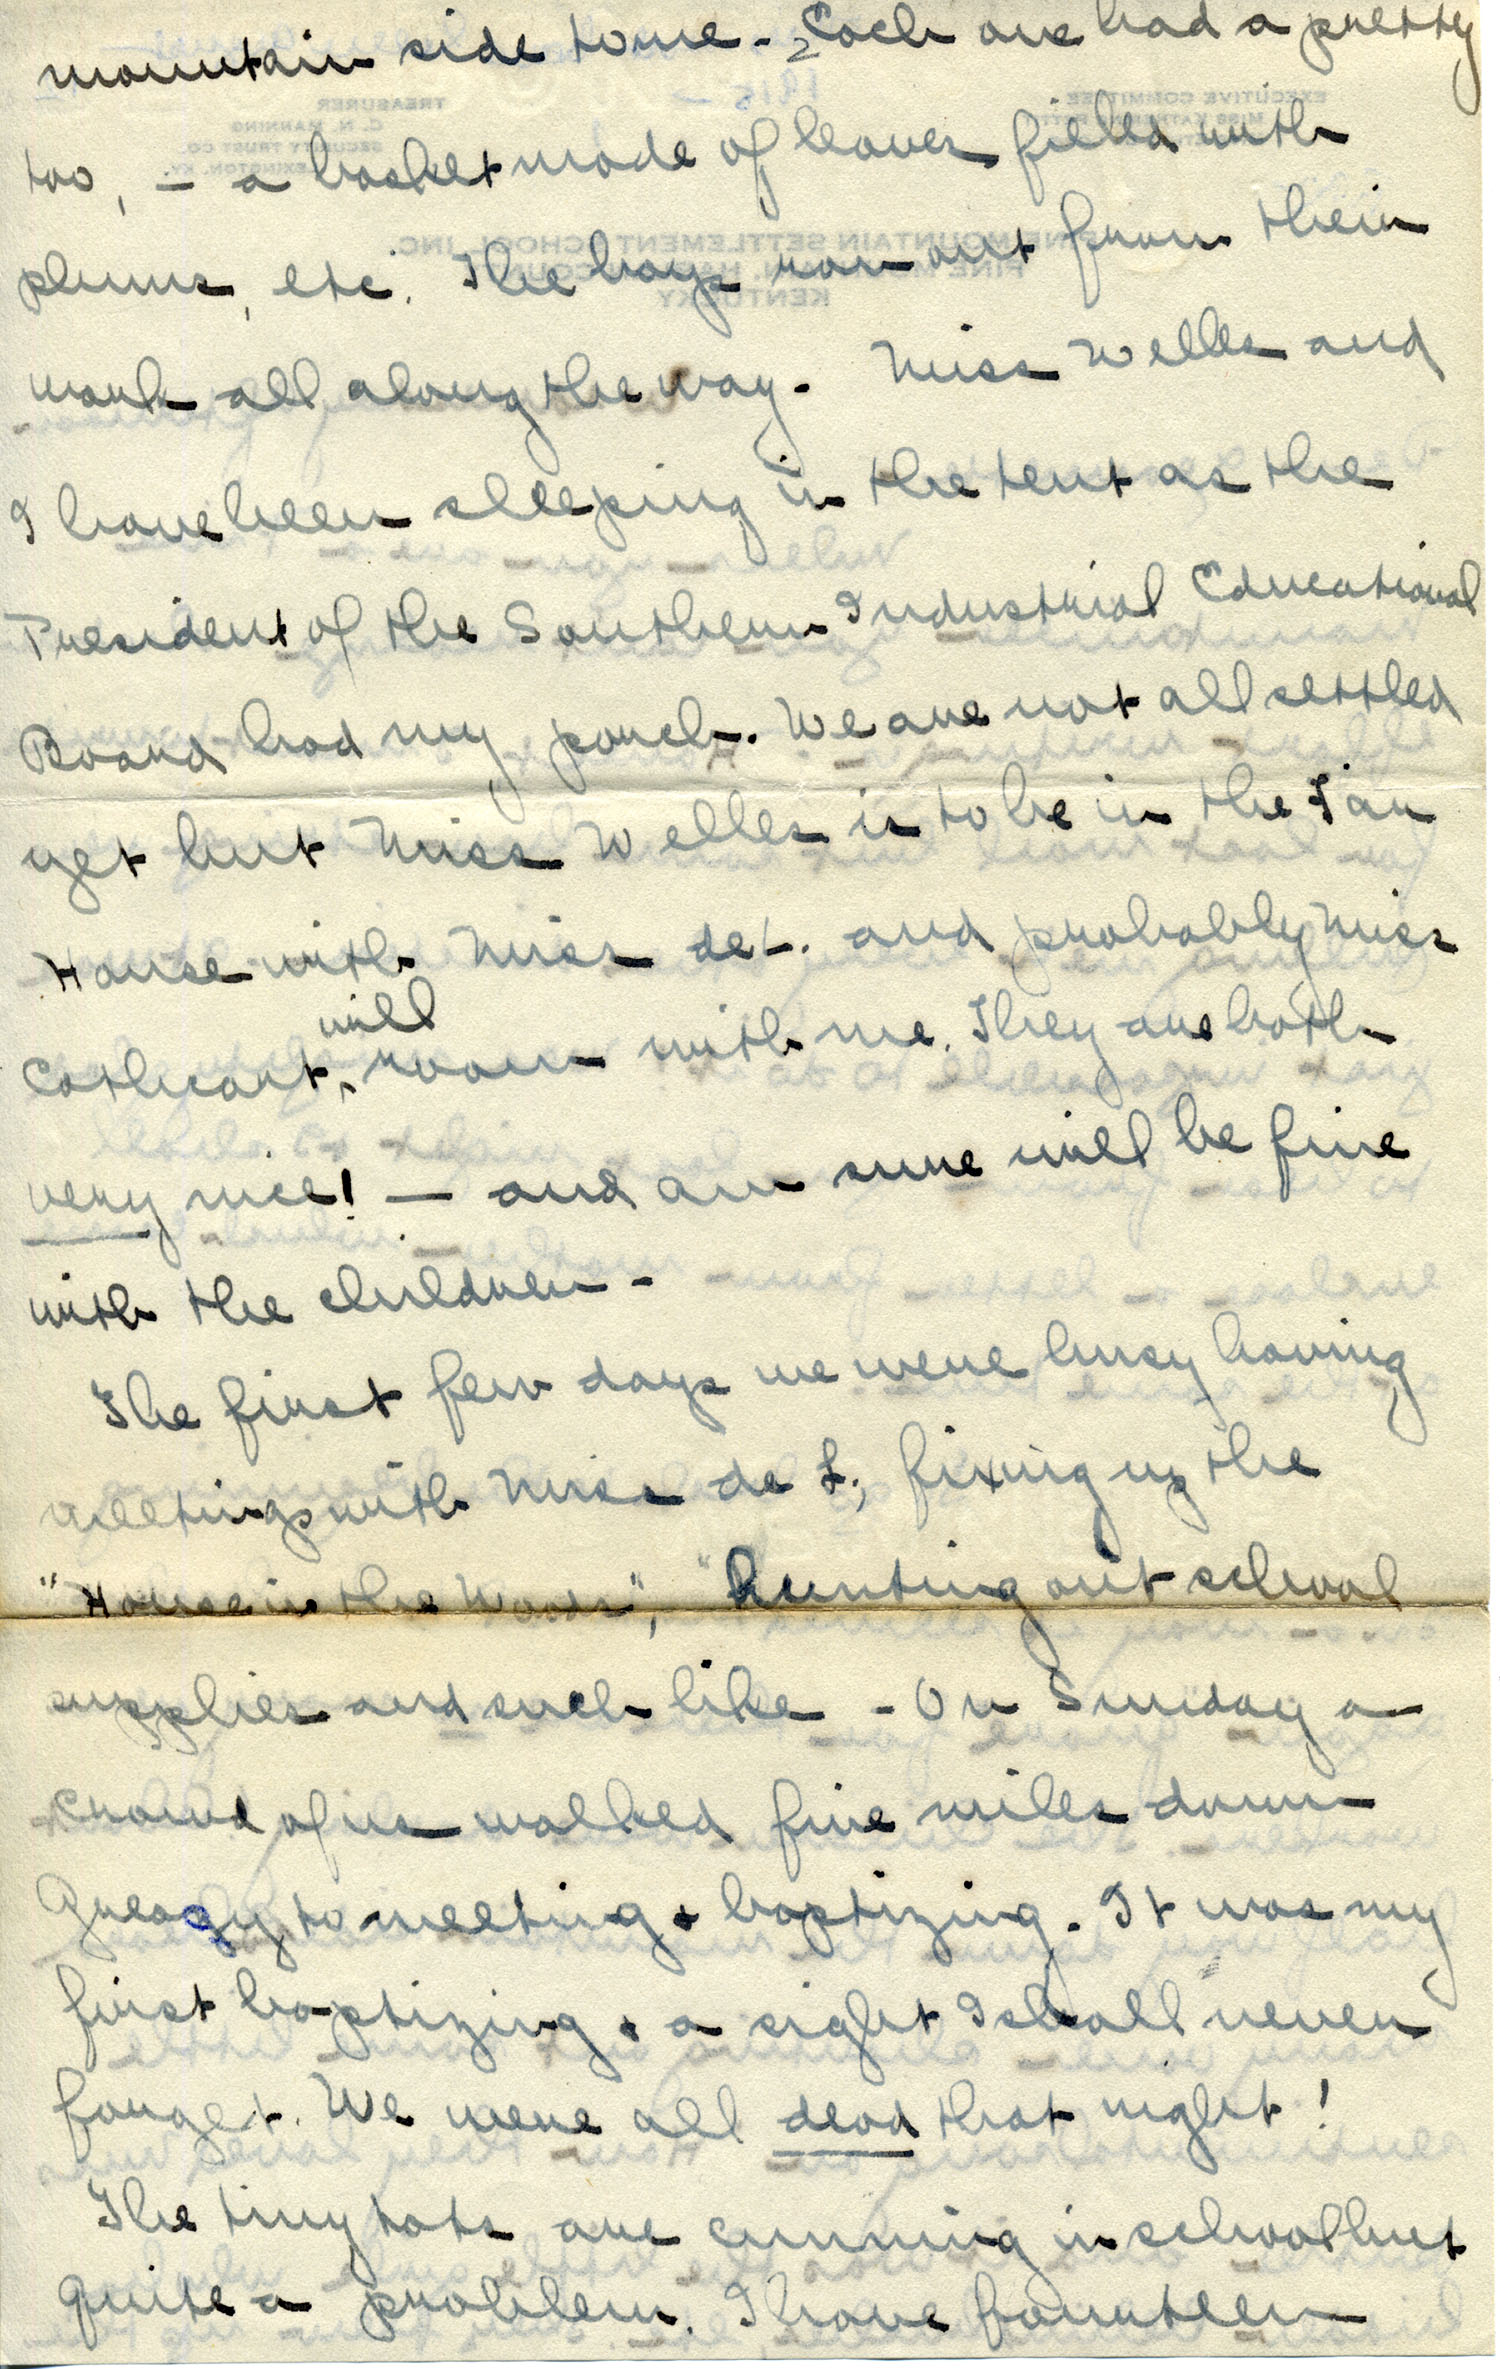 mountain side to me - Each one had a pretty
too, - a basket made of leaves filled with
plums, etc. The boys ran out from their
work all along the way. Miss Welles and
I have been sleeping in the tent as the
President of the Southern Industrial Educational
Board had my porch. We are not all settled
yet but Miss Welles is to be in the Far
House with Miss de L. and probably Miss
Cathcart, will room with me. They are both
very nice! - and am sure will be fine
with the children -
The first few days we were busy having
meetings with Miss de L; fixing up the
"House in the Woods", hunting out school
supplies and such like - On Sunday a
crowd of us walked five miles down
Greasy to meeting & baptizing. It was my
first baptizing & a sight I shall never
forget. We were all dead that night!
The tiny tots are cunning in school but
quite a problem. I have fourteen
EXECUTIVE COMMITTEE
TREASURER
C. N. MANNING
SECURITY TRUST CO.
LEXINGTON, KY.
PINE MOUNTAIN SETTLEMENT SCHOOL, INC.
KENTUCKY